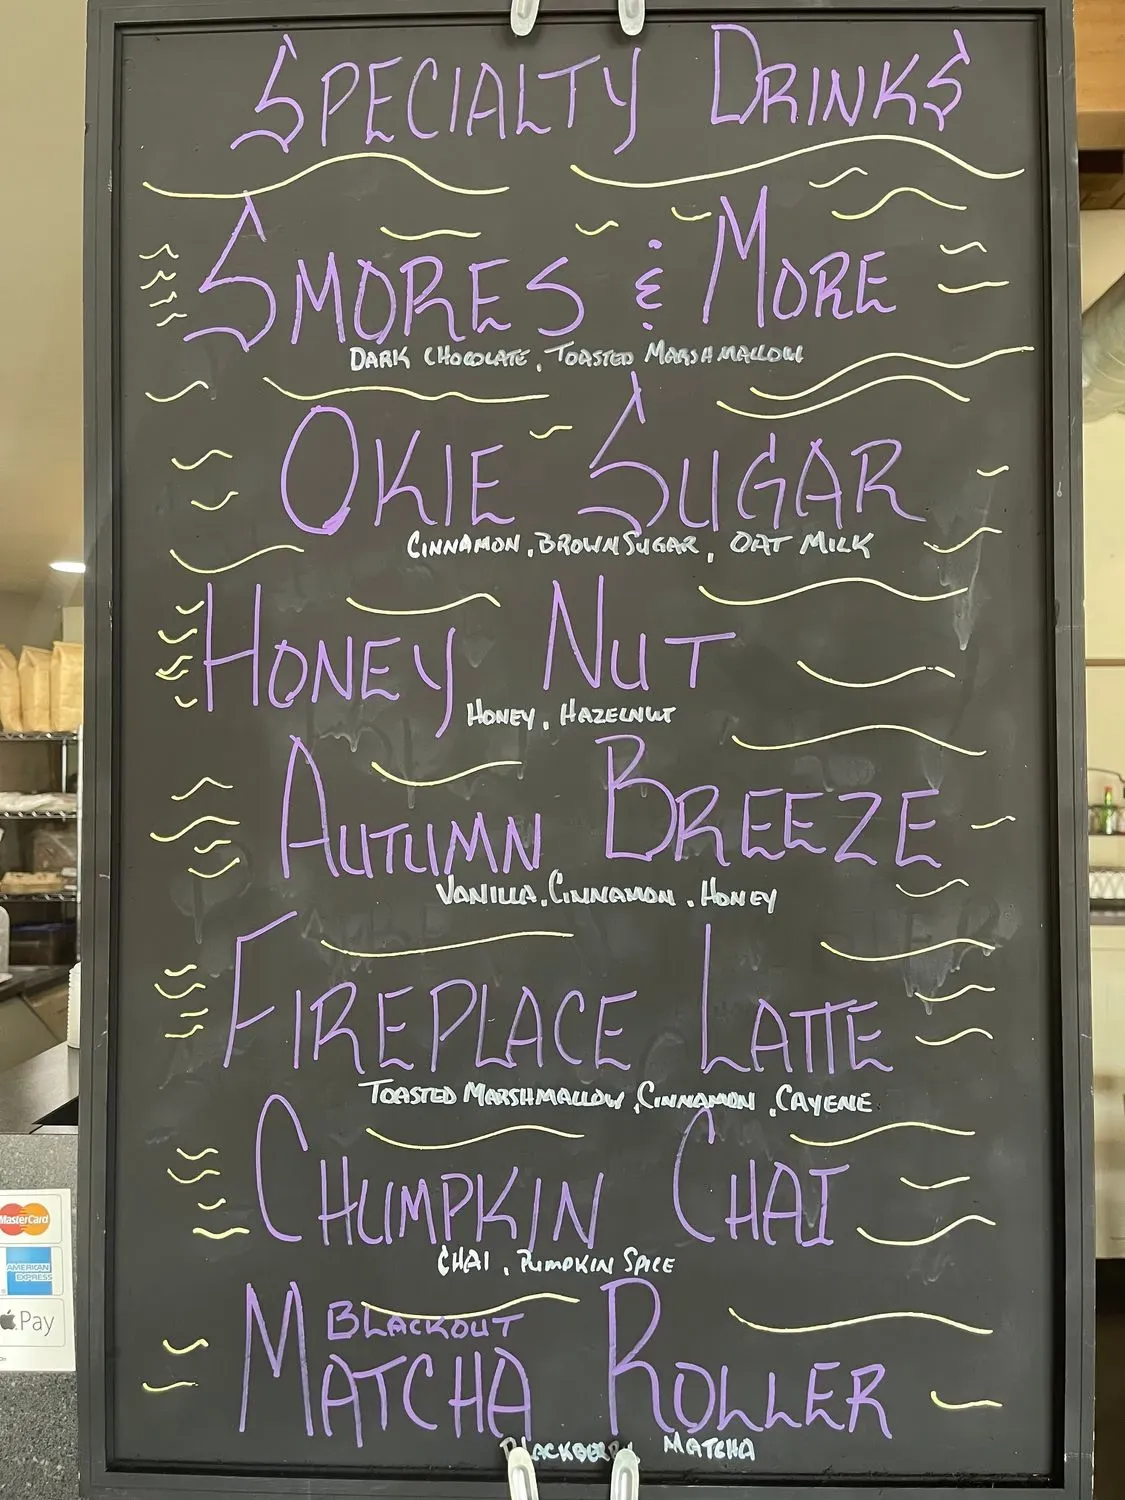 SPECIALTY DRINKS
SMORES & MORE
DARK CHOCOLATE, TOASTED MARSHMALLOW
OKIE SUGAR
CINNAMON, BROWN SUGAR, OAT MILK
HONEY NUT
HONEY, HAZELNUT
AUTUMN BREEZE
VANILLA, CINNAMON, HONEY
FIREPLACE LATTE
TOASTED MARSHMALLOW, CINNAMON, CAYENE
CHUMPKIN CHAI
CHAI, PUMPKIN SPICE
BLACKOUT
MATCHA ROLLER
BLACKBERRY MATCHA
MasterCard
AMERICAN
EXPRESS
Pay